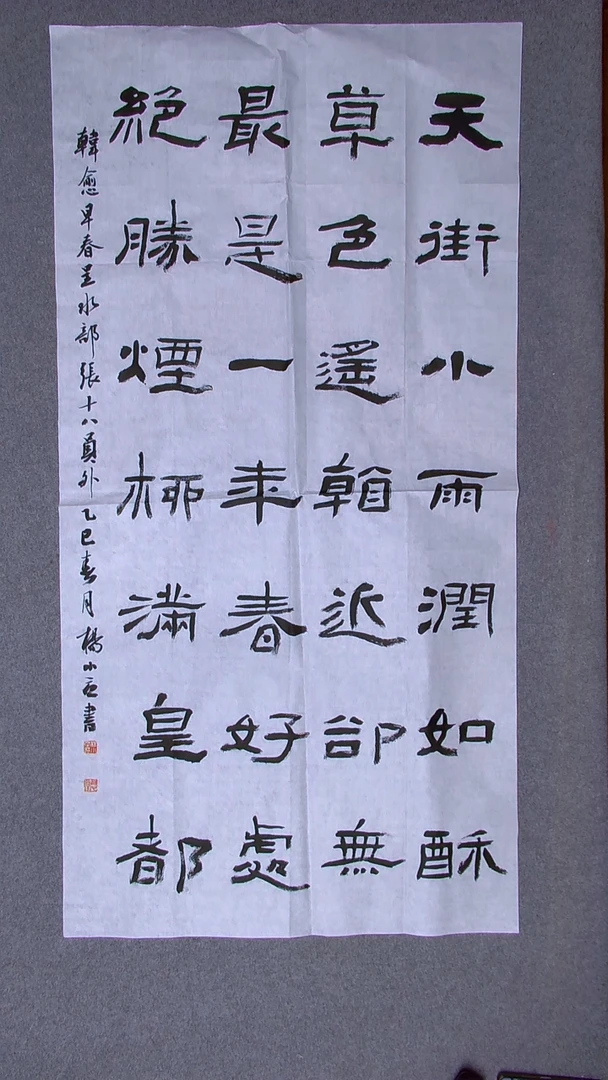 天街小雨潤如酥
草色遙看近卻無
最是一年春好處
絕勝煙柳滿皇都
韓愈早春呈水部張十八員外乙巳春月楊小書